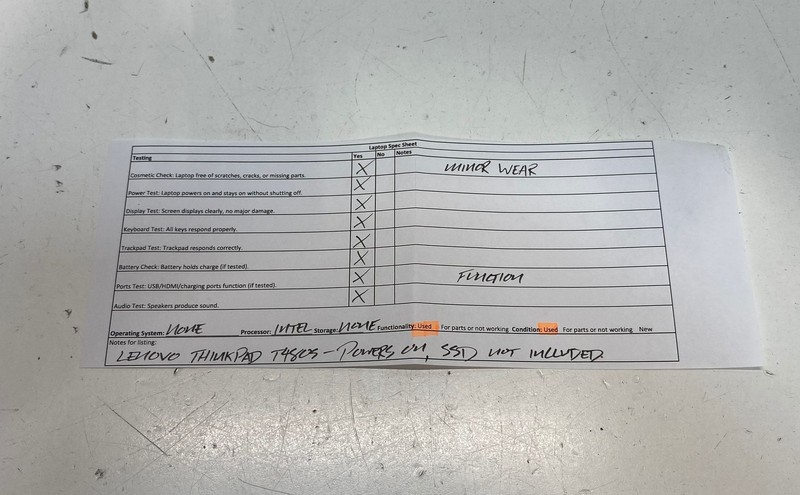 Laptop Spec Sheet
Testing Yes No Notes
Cosmetic Check: Laptop free of scratches, cracks, or missing parts. X MINOR WEAR
Power Test: Laptop powers on and stays on without shutting off. X
Display Test: Screen displays clearly, no major damage. X
Keyboard Test: All keys respond properly. X
Trackpad Test: Trackpad responds correctly X
Battery Check: Battery holds charge (if tested). X
Ports Test: USB/HDMI/charging ports function (if tested). X FUNCTION
Audio Test: Speakers produce sound. X
Operating System: NONE Processor: INTEL Storage: NONE Functionality: Used For parts or not working Condition: Used For parts or not working New
Notes for listing:
LENOVO THINKPAD T480S - POWERS ON, SSD NOT INCLUDED.